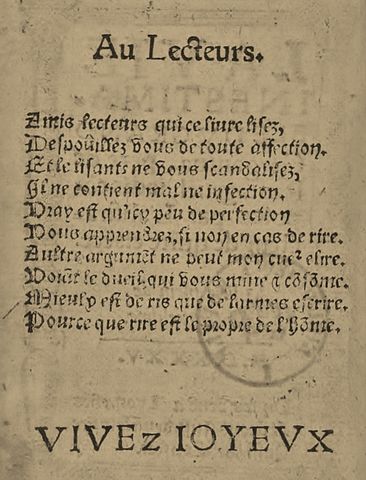 Au Lecteurs.
Amis lecteurs qui ce liure lisez,
Despouillez vous de toute affection.
Et le lisants ne vous scandalisez,
Il ne contient mal ne infection.
Vray est qu'icy peu de perfection
Vous apprendrez, si non en cas de rire.
Aultre argumēt ne peut mon cueꝛ elire.
Voiāt le dueil, qui vous mine & cōsōme.
Mieulx est de ris que de larmes escrire.
Pource que rire est le propre de l'hōme.
VIVEz IOYEVX